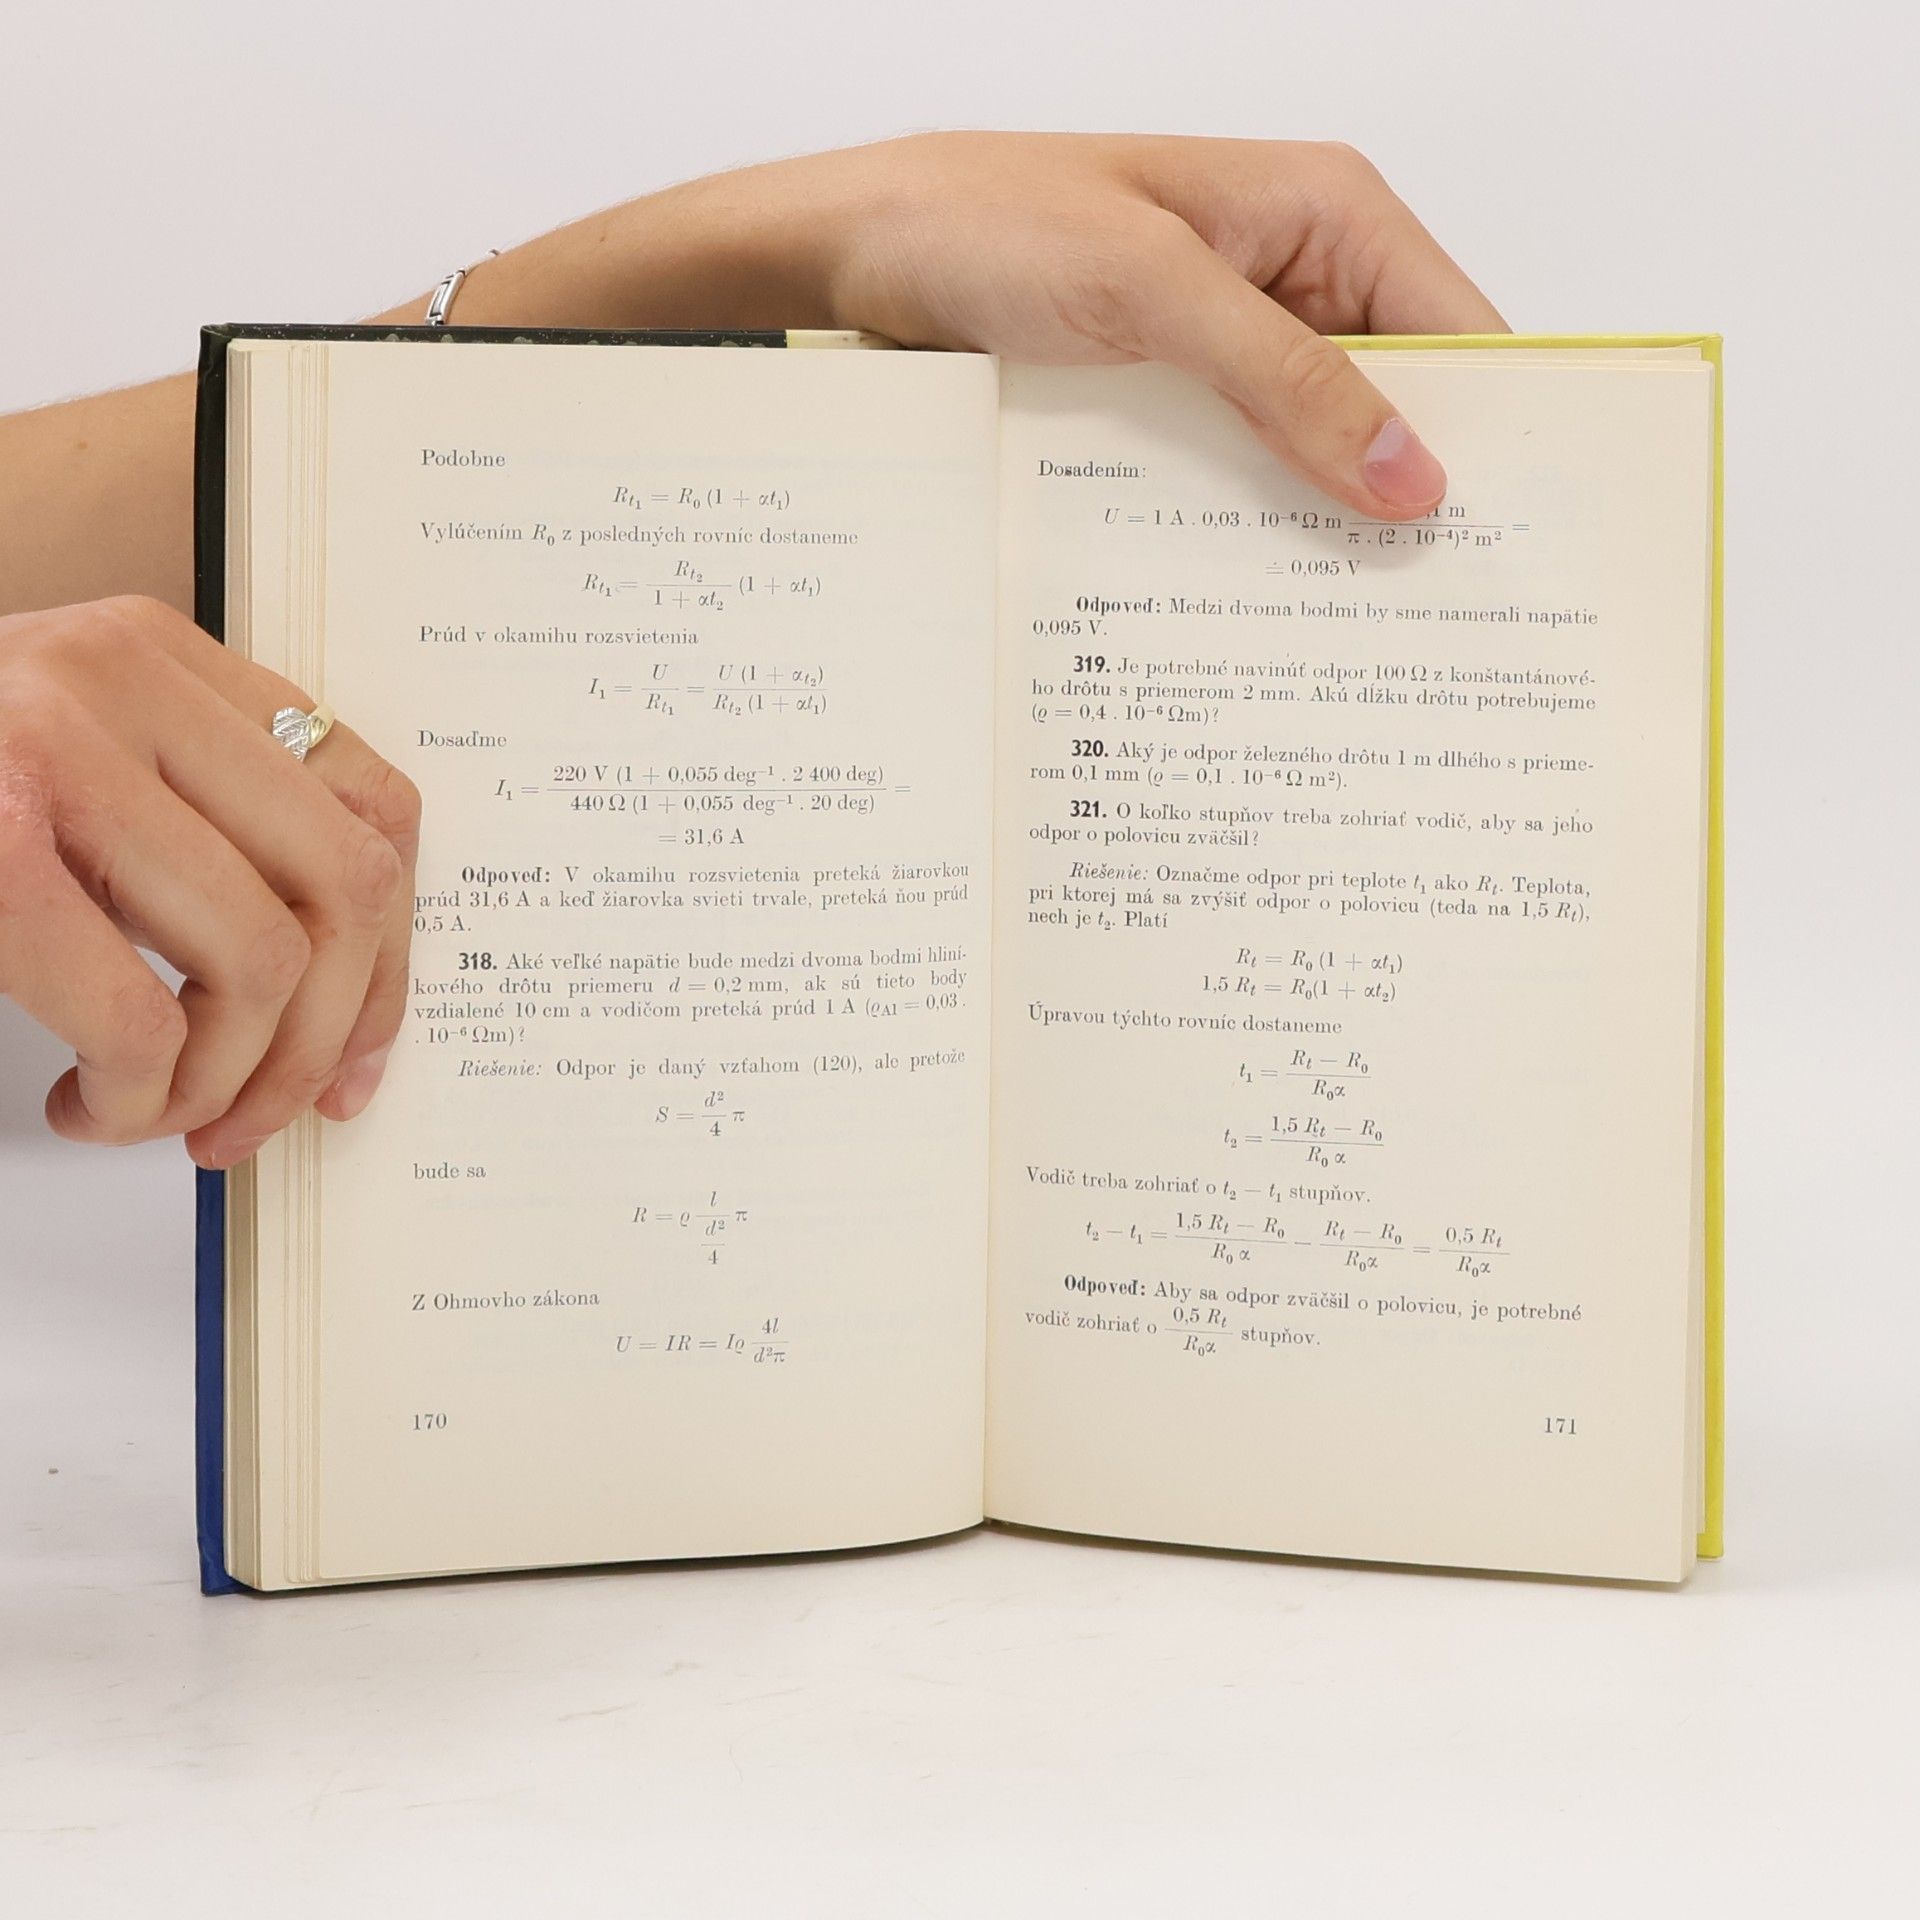 Podobne
R_{t_1} = R_0 (1 + αt_1)
Vylúčením R_0 z posledných rovníc dostaneme
R_{t_1} = \frac{R_{t_2}}{1 + αt_2} (1 + αt_1)
Prúd v okamihu rozsvietenia
I_1 = \frac{U}{R_{t_1}} = \frac{U (1 + α_{t_2})}{R_{t_2} (1 + αt_1)}
Dosaďme
I_1 = \frac{220 V (1 + 0,055 deg^{-1} . 2 400 deg)}{440 Ω (1 + 0,055 deg^{-1} . 20 deg)} =
= 31,6 A
Odpoveď: V okamihu rozsvietenia preteká žiarovkou
prúd 31,6 A a keď žiarovka svieti trvale, preteká ňou prúd
0,5 A.
318. Aké veľké napätie bude medzi dvoma bodmi hliní-
kového drôtu priemeru d = 0,2 mm, ak sú tieto body
vzdialené 10 cm a vodičom preteká prúd 1 A (ϱ_{Al} = 0,03 .
. 10^{-6} Ωm)?
Riešenie: Odpor je daný vzťahom (120), ale pretože
S = \frac{d^2}{4} π
bude sa
R = ϱ \frac{l}{\frac{d^2}{4}} π
Z Ohmovho zákona
U = IR = Iϱ \frac{4l}{d^2π}
170
Dosadením:
U = 1 A . 0,03 . 10^{-6} Ω m \frac{,1 m}{π . (2 . 10^{-4})^2 m^2} =
≐ 0,095 V
Odpoveď: Medzi dvoma bodmi by sme namerali napätie
0,095 V.
319. Je potrebné navinúť odpor 100 Ω z konštantánové-
ho drôtu s priemerom 2 mm. Akú dĺžku drôtu potrebujeme
(ϱ = 0,4 . 10^{-6} Ωm)?
320. Aký je odpor železného drôtu 1 m dlhého s prieme-
rom 0,1 mm (ϱ = 0,1 . 10^{-6} Ω m^2).
321. O koľko stupňov treba zohriať vodič, aby sa jeho
odpor o polovicu zväčšil?
Riešenie: Označme odpor pri teplote t_1 ako R_t. Teplota,
pri ktorej má sa zvýšiť odpor o polovicu (teda na 1,5 R_t),
nech je t_2. Platí
R_t = R_0 (1 + αt_1)
1,5 R_t = R_0(1 + αt_2)
Úpravou týchto rovníc dostaneme
t_1 = \frac{R_t − R_0}{R_0α}
t_2 = \frac{1,5 R_t − R_0}{R_0 α}
Vodič treba zohriať o t_2 − t_1 stupňov.
t_2 − t_1 = \frac{1,5 R_t − R_0}{R_0 α} − \frac{R_t − R_0}{R_0α} = \frac{0,5 R_t}{R_0α}
Odpoveď: Aby sa odpor zväčšil o polovicu, je potrebné
vodič zohriať o \frac{0,5 R_t}{R_0α} stupňov.
171